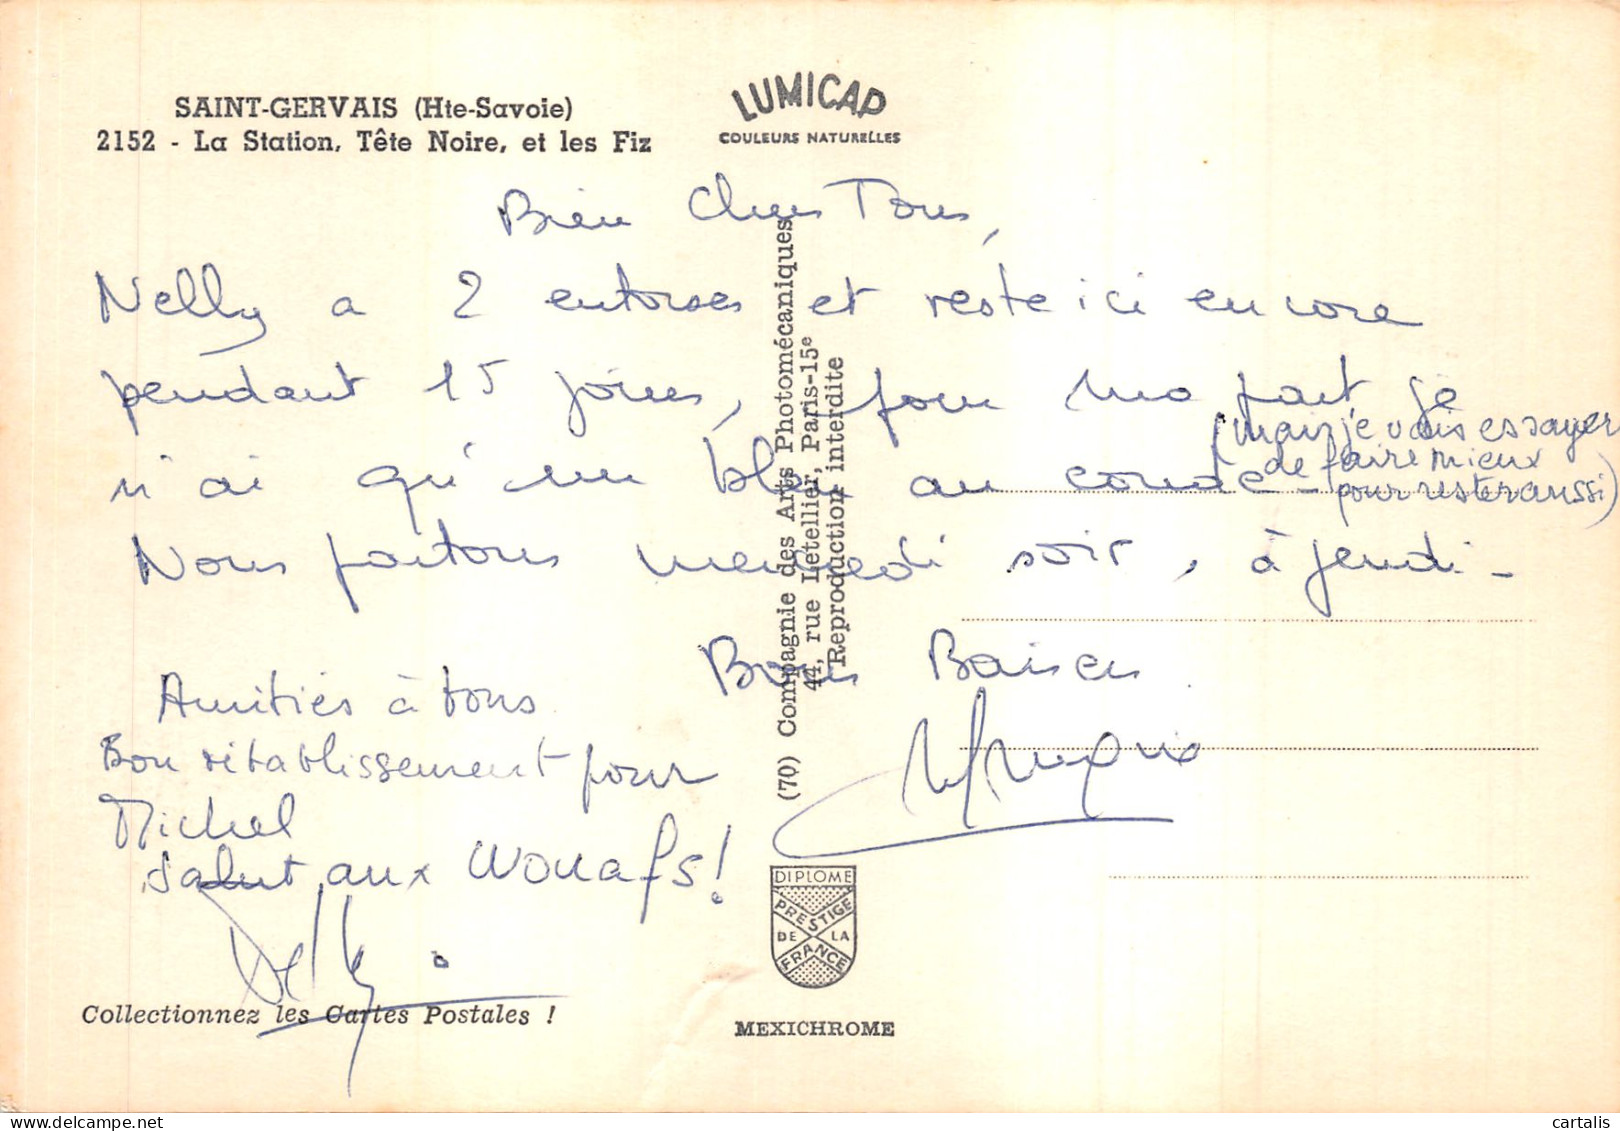 SAINT-GERVAIS (Hte-Savoie)
2152 - La Station, Tête Noire, et les Fiz
LUMICAP
COULEURS NATURELLES
Bien Chers Tous,
Nelly a 2 entorses et reste ici encore
pendant 15 jours, pour ma part je
n'ai qu'un bleu au coude -
(mais je vais essayer
de faire mieux
pour rester aussi)
Nous partons mercredi soir, à jeudi -
Bons Baisers
Amitiés à tous
Bon rétablissement pour
Michel
Salut aux Wouafs!
Nelly
(70) Compagnie des Arts Photomécaniques
44, rue Letellier, Paris-15e
Reproduction interdite
DIPLOME
PRESTIGE
DE LA
FRANCE
Collectionnez les Cartes Postales !
MEXICHROME
cartalis
www.delcampe.net